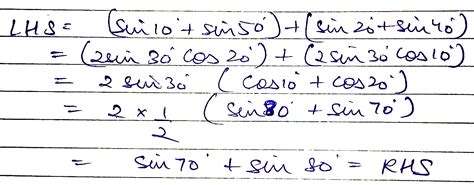 LHS = (sin10° + sin50°) + (sin20° + sin40°)
= (2sin 30° cos 20°) + (2sin 30° cos10°)
= 2 sin30° (cos10° + cos20°)
= 2 × 1/2 (sin80° + sin 70°)
= sin70° + sin 80° = RHS